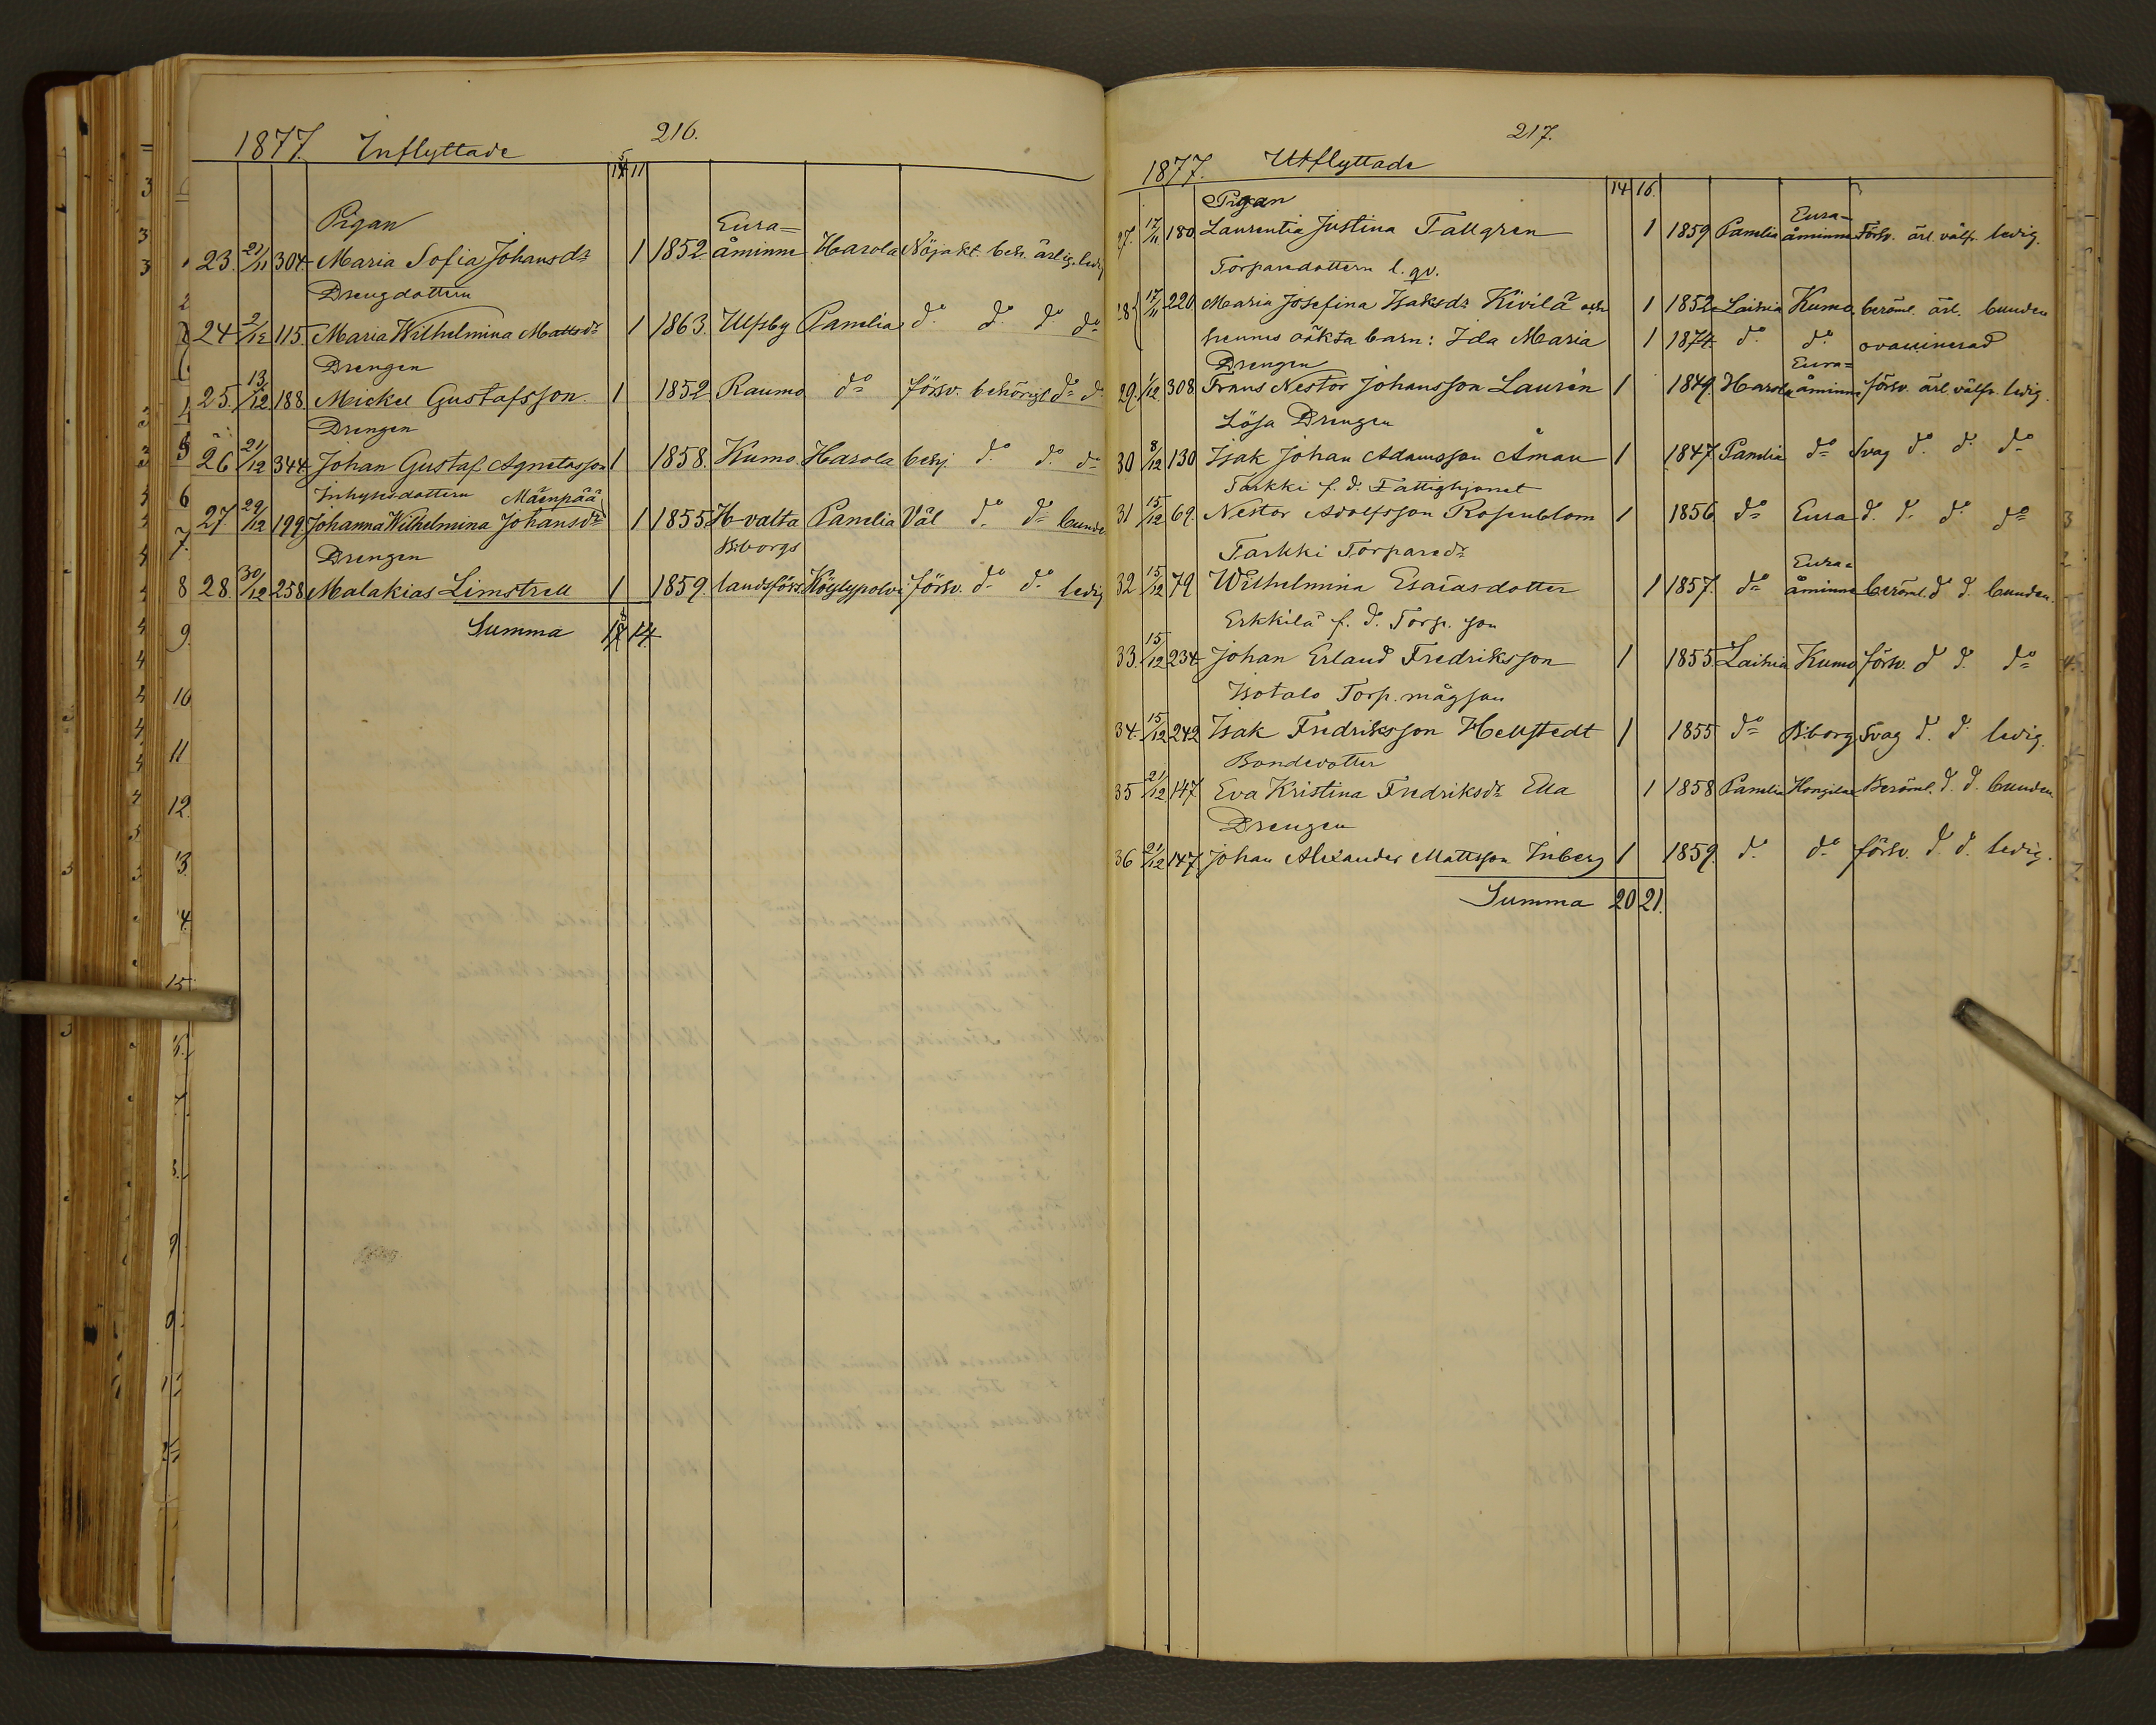 216.
1877. Inflyttade
14 11
5
Pigan
23. 21/11 304 Maria Sofia Johansdr 1 1852 Euraåminne Harola Nöjakt. beh. ärlig. ledig
Drengdottern
24 2/12 115. Maria Wilhelmina Mattsdr 1 1863. Ulfsby Panelia do do do do
Drengen
25. 13/12 188 Mickel Gustafsson 1 1852 Raumo do försv. behörigt do do
Drengen
26 21/12 344 Johan Gustaf Agnetasson 1 1858. Kumo Harola behj. do do do
Inhysesdottern Mäenpää
27. 29/12 199 Johanna Wilhelmina Johansdr 1 1855 H-valta Panelia Väl do do bunden
Drengen
28. 30/12 258 Malakias Limstrell 1 1859. B:borgs landsförs. Köylypolvi försv. do do ledig
Summa 14
217.
1877. Utflyttade
14 16.
Pigan
27. 12/11 180 Laurentia Justina Tallgren 1 1859 Panelia Euraåminne Försv. ärl. välfr. ledig.
Torparedottern l. qv.
28 17/11 220 Maria Josefina Isaksdr Kivilä och 1 1852 Laihia Kumo beröml. ärl. bunden
hennes oäkta barn: Ida Maria 1 1874 do do ovaccinerad
Drengen
29. 1/12. 308 Frans Nestor Johansson Laurén 1 1849. Harola Euraåminne försv. ärl. välfr. ledig.
Lösa Drengen
30 8/12 130 Isak Johan Adamsson Åman 1 1847 Panelia do Svag do do do
Tarkki f. d. Fattighjonet
31 15/12 69. Nestor Adolfsson Rosenblom 1 1856 do Eura d. d. do do
Tarkki Torparedr
32 15/12 79 Wilhelmina Esaiasdotter 1 1857. do Euraåminne beröml. d d. bunden.
Erkkilä f. d. Torp. son
33. 15/12 234 Johan Erland Fredriksson 1 1855 Laihia Kumo försv. d d. do
Isotalo Torp. mågson
34. 15/12 242 Isak Fredriksson Hellstedt 1 1855 do B:borg Svag d. d. ledig.
Bondedotter
35 21/12 147 Eva Kristina Fredriksdr Ella 1 1858 Panelia Hongilax Beröml. d. d. bunden.
Drengen
36 21/12 147 Johan Alexander Mattsson Inberg 1 1859. do do försv. d. d. ledig.
Summa 20 21.